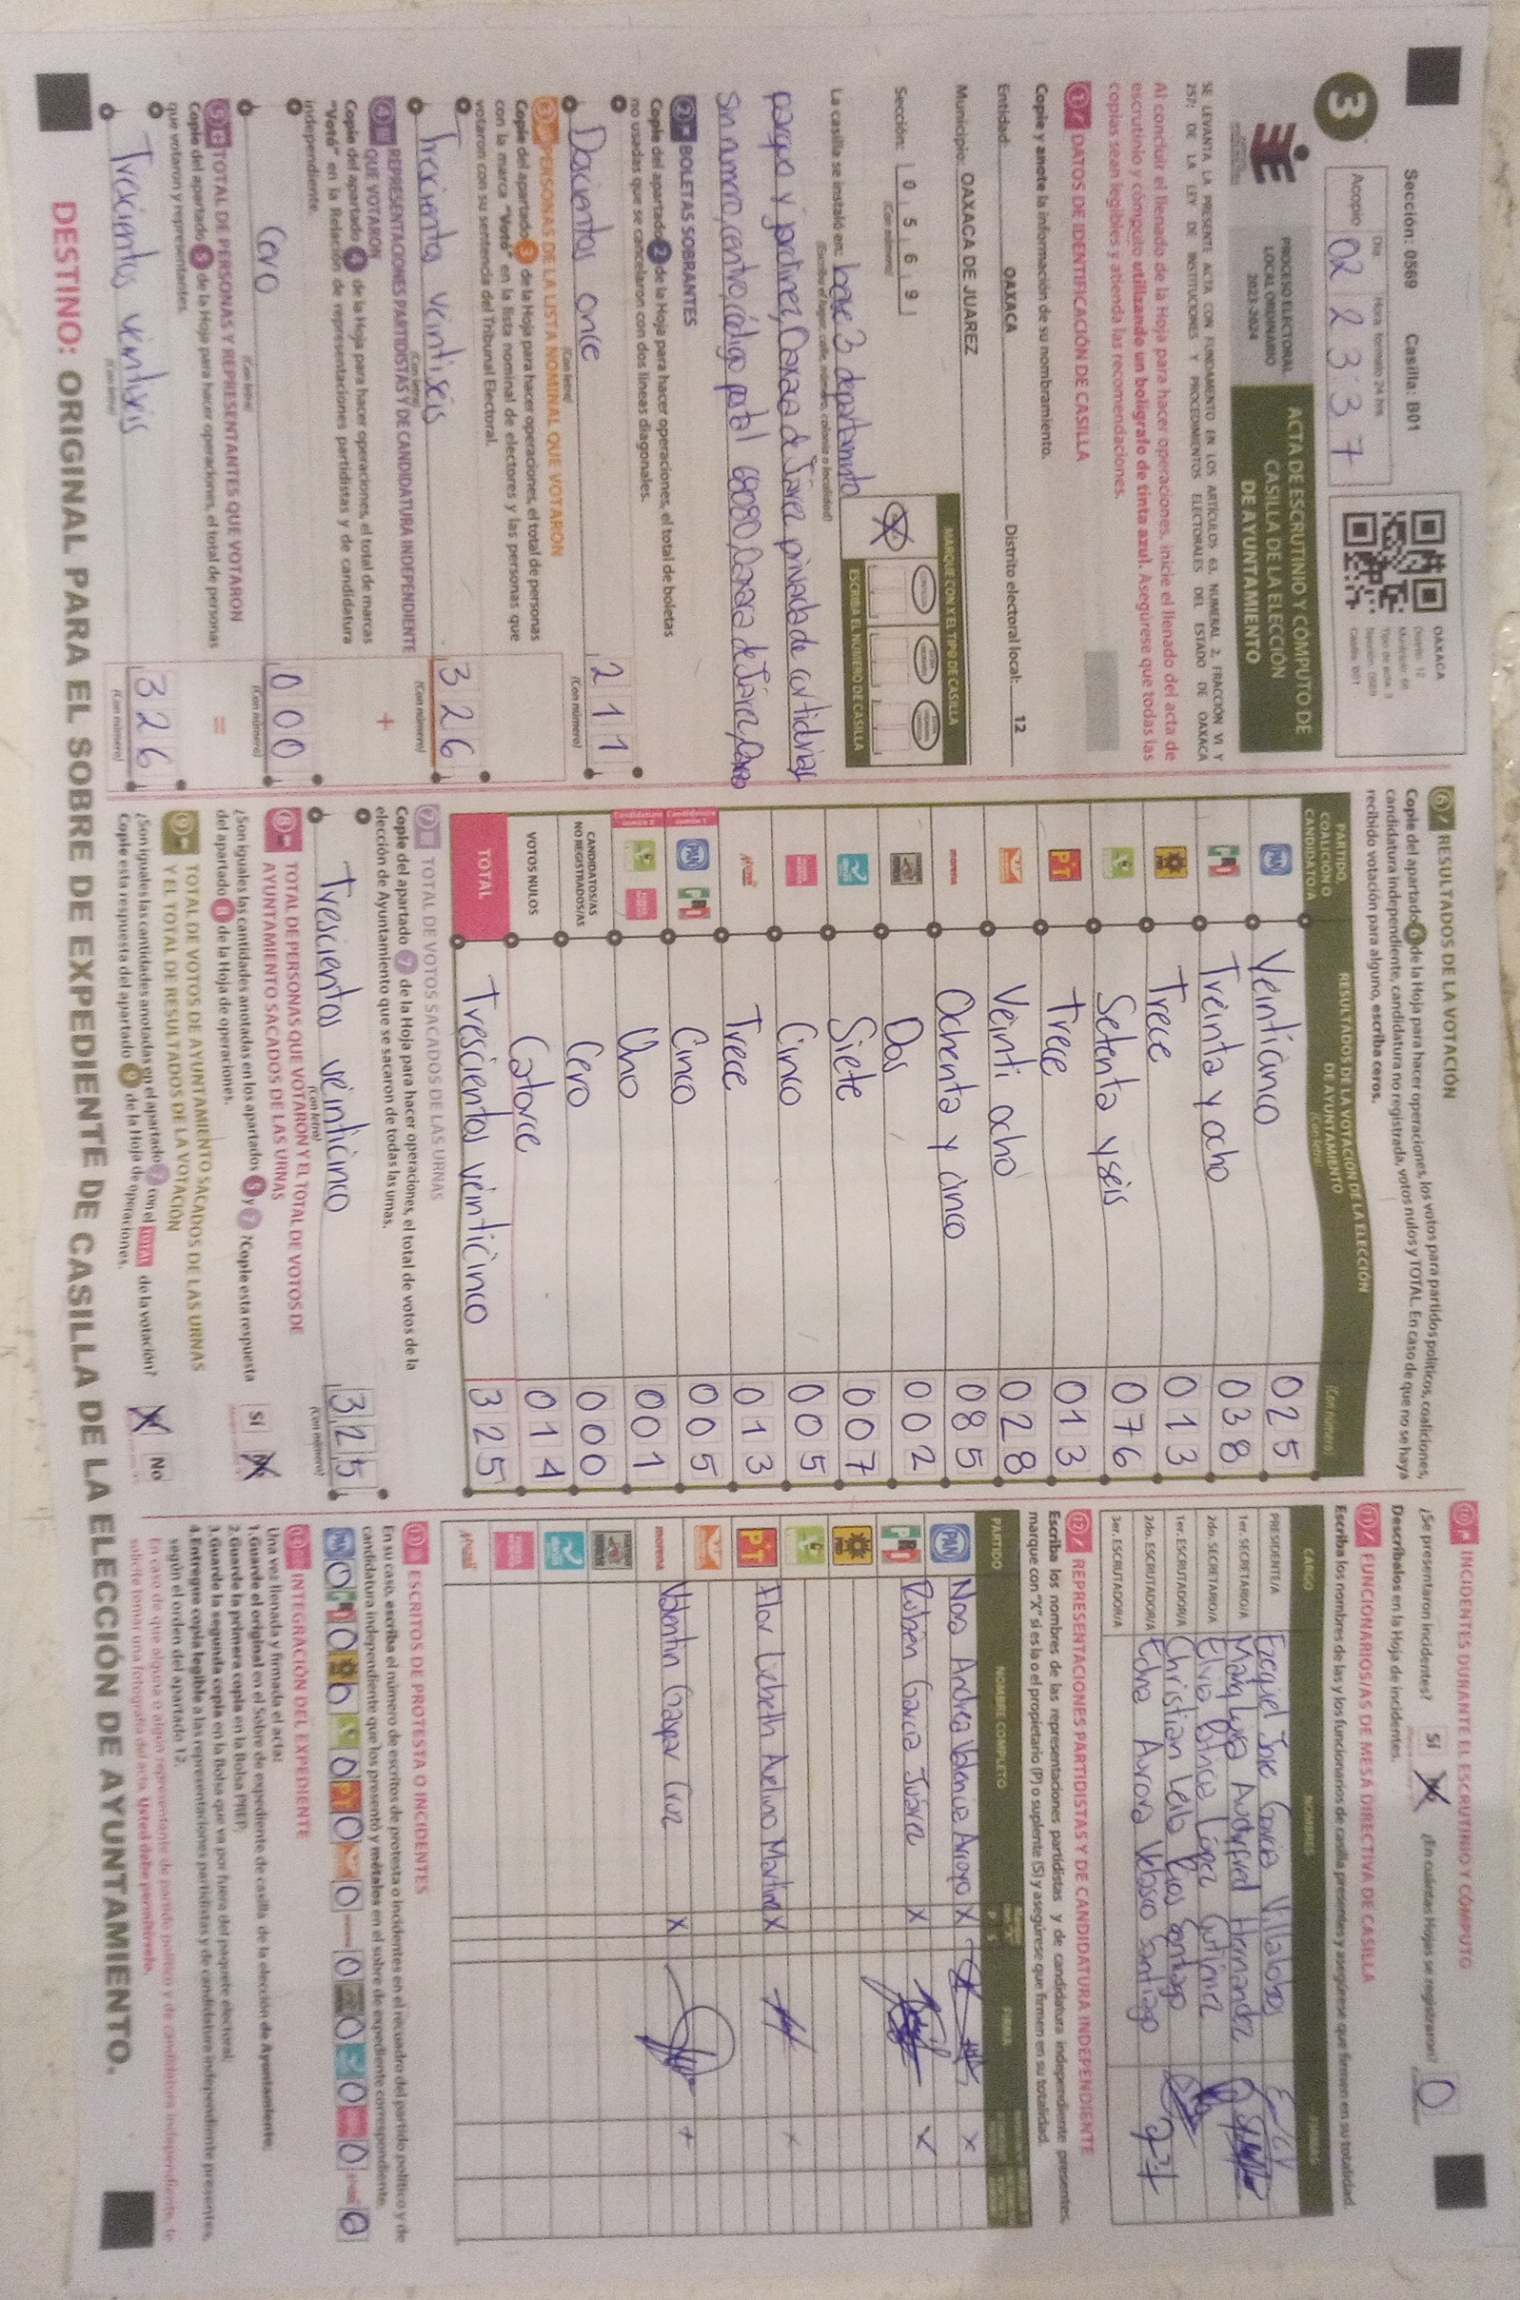 Sección: 0569 Casilla: B01
3
Día Hora formato 24 hrs
Acopio 02 23:37
OAXACA
PROCESO ELECTORAL
LOCAL ORDINARIO
2023-2024
ACTA DE ESCRUTINIO Y CÓMPUTO DE
CASILLA DE LA ELECCIÓN
DE AYUNTAMIENTO
SE LEVANTA LA PRESENTE ACTA CON FUNDAMENTO EN LOS ARTÍCULOS 63, NUMERAL 2, FRACCIÓN VI Y
257; DE LA LEY DE INSTITUCIONES Y PROCEDIMIENTOS ELECTORALES DEL ESTADO DE OAXACA
Al concluir el llenado de la Hoja para hacer operaciones, inicie el llenado del acta de
escrutinio y cómputo utilizando un bolígrafo de tinta azul. Asegúrese que todas las
copias sean legibles y atienda las recomendaciones.
1 DATOS DE IDENTIFICACIÓN DE CASILLA
Copie y anote la información de su nombramiento.
Entidad: OAXACA Distrito electoral local: 12
Municipio: OAXACA DE JUAREZ
Sección: 0 5 6 9
(Con número)
MARQUE CON X EL TIPO DE CASILLA
ESCRIBA EL NÚMERO DE CASILLA
La casilla se instaló en: base 3 departamento
(Escriba el lugar, calle, número, colonia o localidad)
parque y jardines, Oaxaca de Júarez privada de
sin numero, centro, código postal 68080, Oaxaca de Júarez, Oaxa
2 BOLETAS SOBRANTES
Copie del apartado 2 de la Hoja para hacer operaciones, el total de boletas
no usadas que se cancelaron con dos líneas diagonales.
Docientos once 211
(Con letra) (Con número)
3 PERSONAS DE LA LISTA NOMINAL QUE VOTARON
Copie del apartado 3 de la Hoja para hacer operaciones, el total de personas
con la marca "Votó" en la lista nominal de electores y las personas que
votaron con su sentencia del Tribunal Electoral.
Trecientos veintiseis 326
(Con letra) (Con número)
4 REPRESENTACIONES PARTIDISTAS Y DE CANDIDATURA INDEPENDIENTE
QUE VOTARON
Copie del apartado 4 de la Hoja para hacer operaciones, el total de marcas
"Votó" en la Relación de representaciones partidistas y de candidatura
independiente.
Cero 000
(Con letra) (Con número)
5 TOTAL DE PERSONAS Y REPRESENTANTES QUE VOTARON
Copie del apartado 5 de la Hoja para hacer operaciones, el total de personas
que votaron y representantes.
Trecientos veintiseis 326
(Con letra) (Con número)
6 RESULTADOS DE LA VOTACIÓN
Copie del apartado 6 de la Hoja para hacer operaciones, los votos para partidos políticos, coaliciones,
candidatura independiente, candidatura no registrada, votos nulos y TOTAL. En caso de que no se haya
recibido votación para alguno, escriba ceros.
PARTIDO,
COALICIÓN O
CANDIDATO/A
RESULTADOS DE LA VOTACIÓN DE LA ELECCIÓN
DE AYUNTAMIENTO
(Con letra) (Con número)
PAN Veinticinco 025
PRI Treinta y ocho 038
PRD Trece 013
Setenta y seis 076
PT trece 013
Veinti ocho 028
morena Ochenta y cinco 085
Dos 002
Siete 007
Cinco 005
Trece 013
PAN PRI Cinco 005
Uno 001
CANDIDATOS/AS
NO REGISTRADOS/AS Cero 000
VOTOS NULOS Catorce 014
TOTAL Trescientos veinticinco 325
7 TOTAL DE VOTOS SACADOS DE LAS URNAS
Copie del apartado 7 de la Hoja para hacer operaciones, el total de votos de la
elección de Ayuntamiento que se sacaron de todas las urnas.
Trescientos veinticinco 325
(Con letra) (Con número)
8 TOTAL DE PERSONAS QUE VOTARON Y EL TOTAL DE VOTOS DE
AYUNTAMIENTO SACADOS DE LAS URNAS
¿Son iguales las cantidades anotadas en los apartados 5 y 7? Copie esta respuesta
del apartado 8 de la Hoja de operaciones.
SÍ
9 TOTAL DE VOTOS DE AYUNTAMIENTO SACADOS DE LAS URNAS
Y EL TOTAL DE RESULTADOS DE LA VOTACIÓN
¿Son iguales las cantidades anotadas en el apartado 7 con el TOTAL de la votación?
Copie esta respuesta del apartado 9 de la Hoja de operaciones.
No
10 INCIDENTES DURANTE EL ESCRUTINIO Y CÓMPUTO
¿Se presentaron incidentes? SÍ ¿En cuántas Hojas se registraron? 0
Descríbalos en la Hoja de incidentes.
11 FUNCIONARIOS/AS DE MESA DIRECTIVA DE CASILLA
Escriba los nombres de las y los funcionarios de casilla presentes y asegúrese que firmen en su totalidad.
CARGO NOMBRES FIRMAS
PRESIDENTE/A Ezequiel Jose Garcia Villalobos
1er. SECRETARIO/A Maria Luisa Hernandez
2do. SECRETARIO/A Elvia Patricia López Gutiérrez
1er. ESCRUTADOR/A Christian Leila Rios Santiago
2do. ESCRUTADOR/A Edna Aurora Velasco Santiago
3er. ESCRUTADOR/A
12 REPRESENTACIONES PARTIDISTAS Y DE CANDIDATURA INDEPENDIENTE
Escriba los nombres de las representaciones partidistas y de candidatura independiente presentes,
marque con "X" si es la o el propietario (P) o suplente (S) y asegúrese que firmen en su totalidad.
PARTIDO NOMBRE COMPLETO P S FIRMA
PAN Noa Andrea Valencia Arroyo X X
PRI Rubién Garcia Juárez X X
PRD
PT Flor Lizbeth Avelino Martinez X X
morena Valentin Gaspar Cruz X
13 ESCRITOS DE PROTESTA O INCIDENTES
En su caso, escriba el número de escritos de protesta o incidentes en el recuadro del partido político y de
candidatura independiente que los presentó y métalos en el sobre de expediente correspondiente.
0 0 0 0 0 0 0 0 0 0 0
14 INTEGRACIÓN DEL EXPEDIENTE
Una vez llenada y firmada el acta:
1. Guarde el original en el Sobre de expediente de casilla de la elección de Ayuntamiento;
2. Guarde la primera copia en la Bolsa PREP;
3. Guarde la segunda copia en la Bolsa que va por fuera del paquete electoral;
4. Entregue copia legible a las representaciones partidistas y de candidatura independiente presentes,
según el orden del apartado 12.
En caso de que alguna o algún representante de partido político y de candidatura independiente, le
solicite tomar una fotografía del acta, usted debe permitírselo.
DESTINO: ORIGINAL PARA EL SOBRE DE EXPEDIENTE DE CASILLA DE LA ELECCIÓN DE AYUNTAMIENTO.